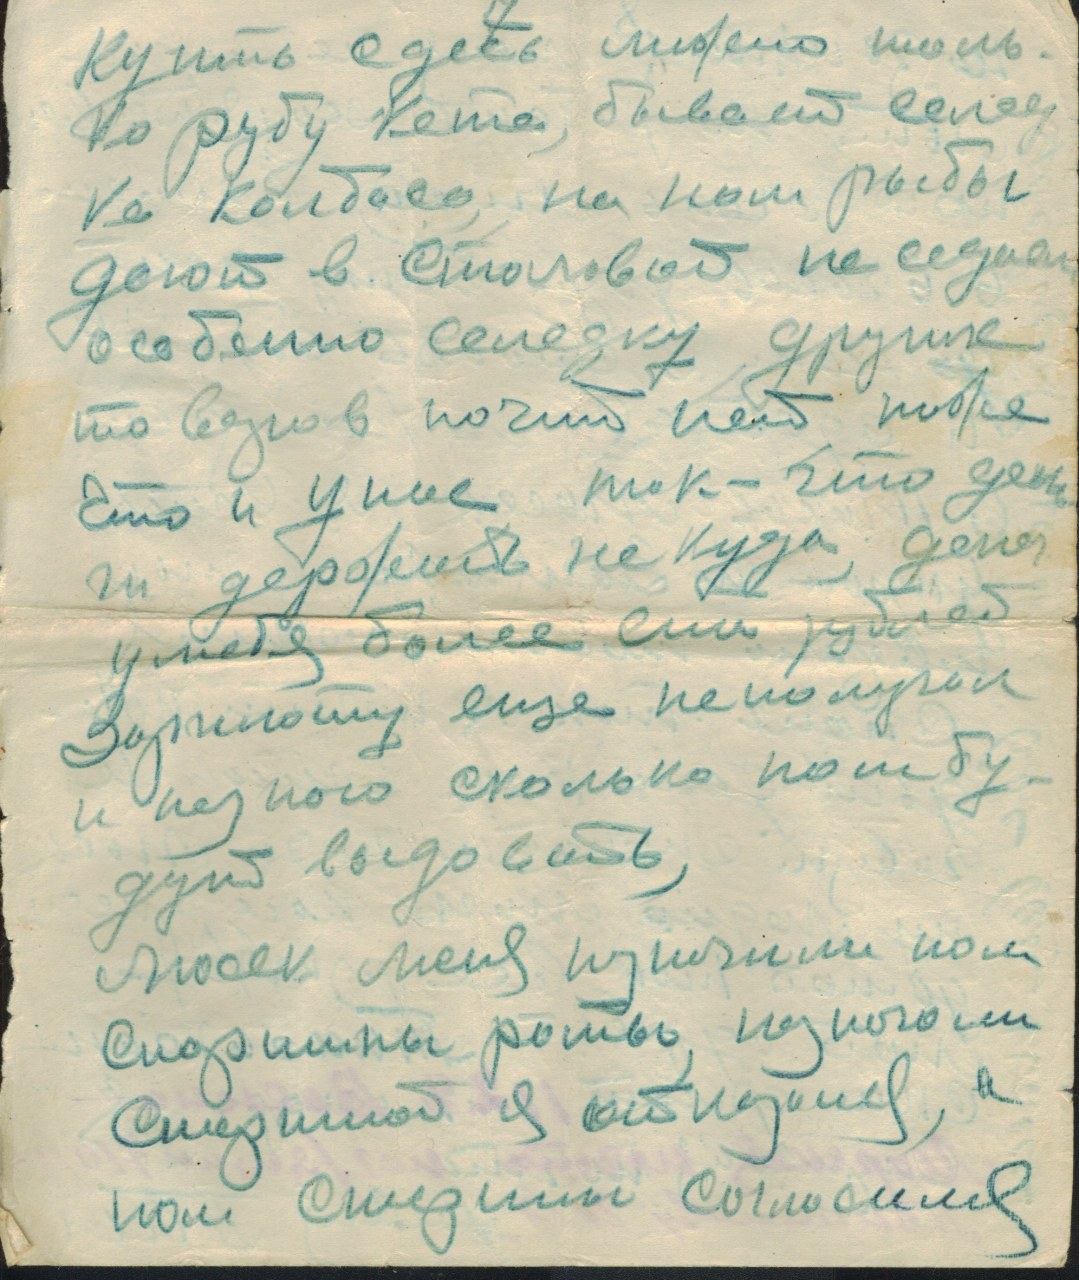 7
Купить сдесь можно толь-
ко рыбу кета, бывает селед
ка колбаса, но нам рыбы
дают в столовай не седаем
особенно селедку, других
товаров почит нет тоже
что и у нас так-что день
ги держать не куда, денег
у меня более ста рублей
Зарплоту еще неполучал
и незнаю сколько нам бу-
дут выдовать,
Люсек меня назначили пом
старшины роты, назначали
старшиной я отказался, а
пом старшины согласился